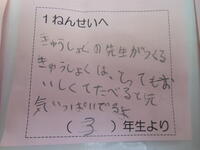 1ねんせいへ
きゅうしょくの先生がつくる
きゅうしょくは、とってもお
いしくてたべると元
気いっぱいでるよ
(3)年生より